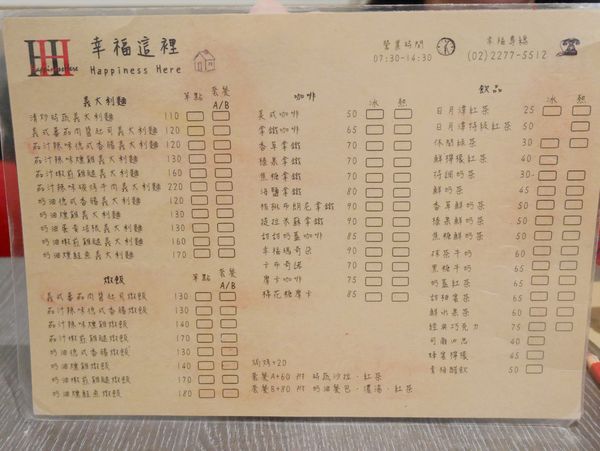 幸福這裡
Happiness Here
營業時間
07:30-14:30
幸福專線
(02)2277-5512
義大利麵 單點 套餐 A/B
清炒時蔬義大利麵 110
義式蕃茄肉醬起司義大利麵 120
茄汁辣味德式香腸義大利麵 120
茄汁辣味燻雞義大利麵 130
茄汁嫩煎雞腿義大利麵 160
茄汁辣味碳烤牛肉義大利麵 220
奶油德式香腸義大利麵 120
奶油燻雞義大利麵 130
奶油蛋黃培根義大利麵 130
奶油嫩煎雞腿義大利麵 160
奶油燻鮭魚義大利麵 170
燉飯 單點 套餐 A/B
義式蕃茄肉醬起司燉飯 130
茄汁辣味德式香腸燉飯 130
茄汁辣味燻雞燉飯 140
茄汁嫩煎雞腿燉飯 170
奶油德式香腸燉飯 130
奶油燻雞燉飯 140
奶油嫩煎雞腿燉飯 170
奶油燻鮭魚燉飯 180
咖啡 冰 熱
美式咖啡 50
拿鐵咖啡 80
香草拿鐵 90
榛果拿鐵 90
焦糖拿鐵 90
海鹽拿鐵 80
核桃布朗尼拿鐵 90
提拉米蘇拿鐵 90
甜甜奶蓋咖啡 70
幸福瑪奇朵 90
卡布奇諾 70
摩卡咖啡 80
棉花糖摩卡 85
焗烤+20
套餐A+60 附 時蔬沙拉．紅茶
套餐B+80 附 奶油餐包．濃湯．紅茶
飲品 冰 熱
日月潭紅茶 25
日月潭特級紅茶 50
休閒綠茶 30
鮮檸檬紅茶 40
特調奶茶 30
鮮奶茶 45
香草鮮奶茶 50
榛果鮮奶茶 50
焦糖鮮奶茶 50
抹茶牛奶 60
黑糖牛奶 65
奶蓋紅茶 60
甜柚蜜茶 65
鮮水果茶 60
經典巧克力 75
可爾必思 40
蜂蜜檸檬 45
青柚醋飲 50